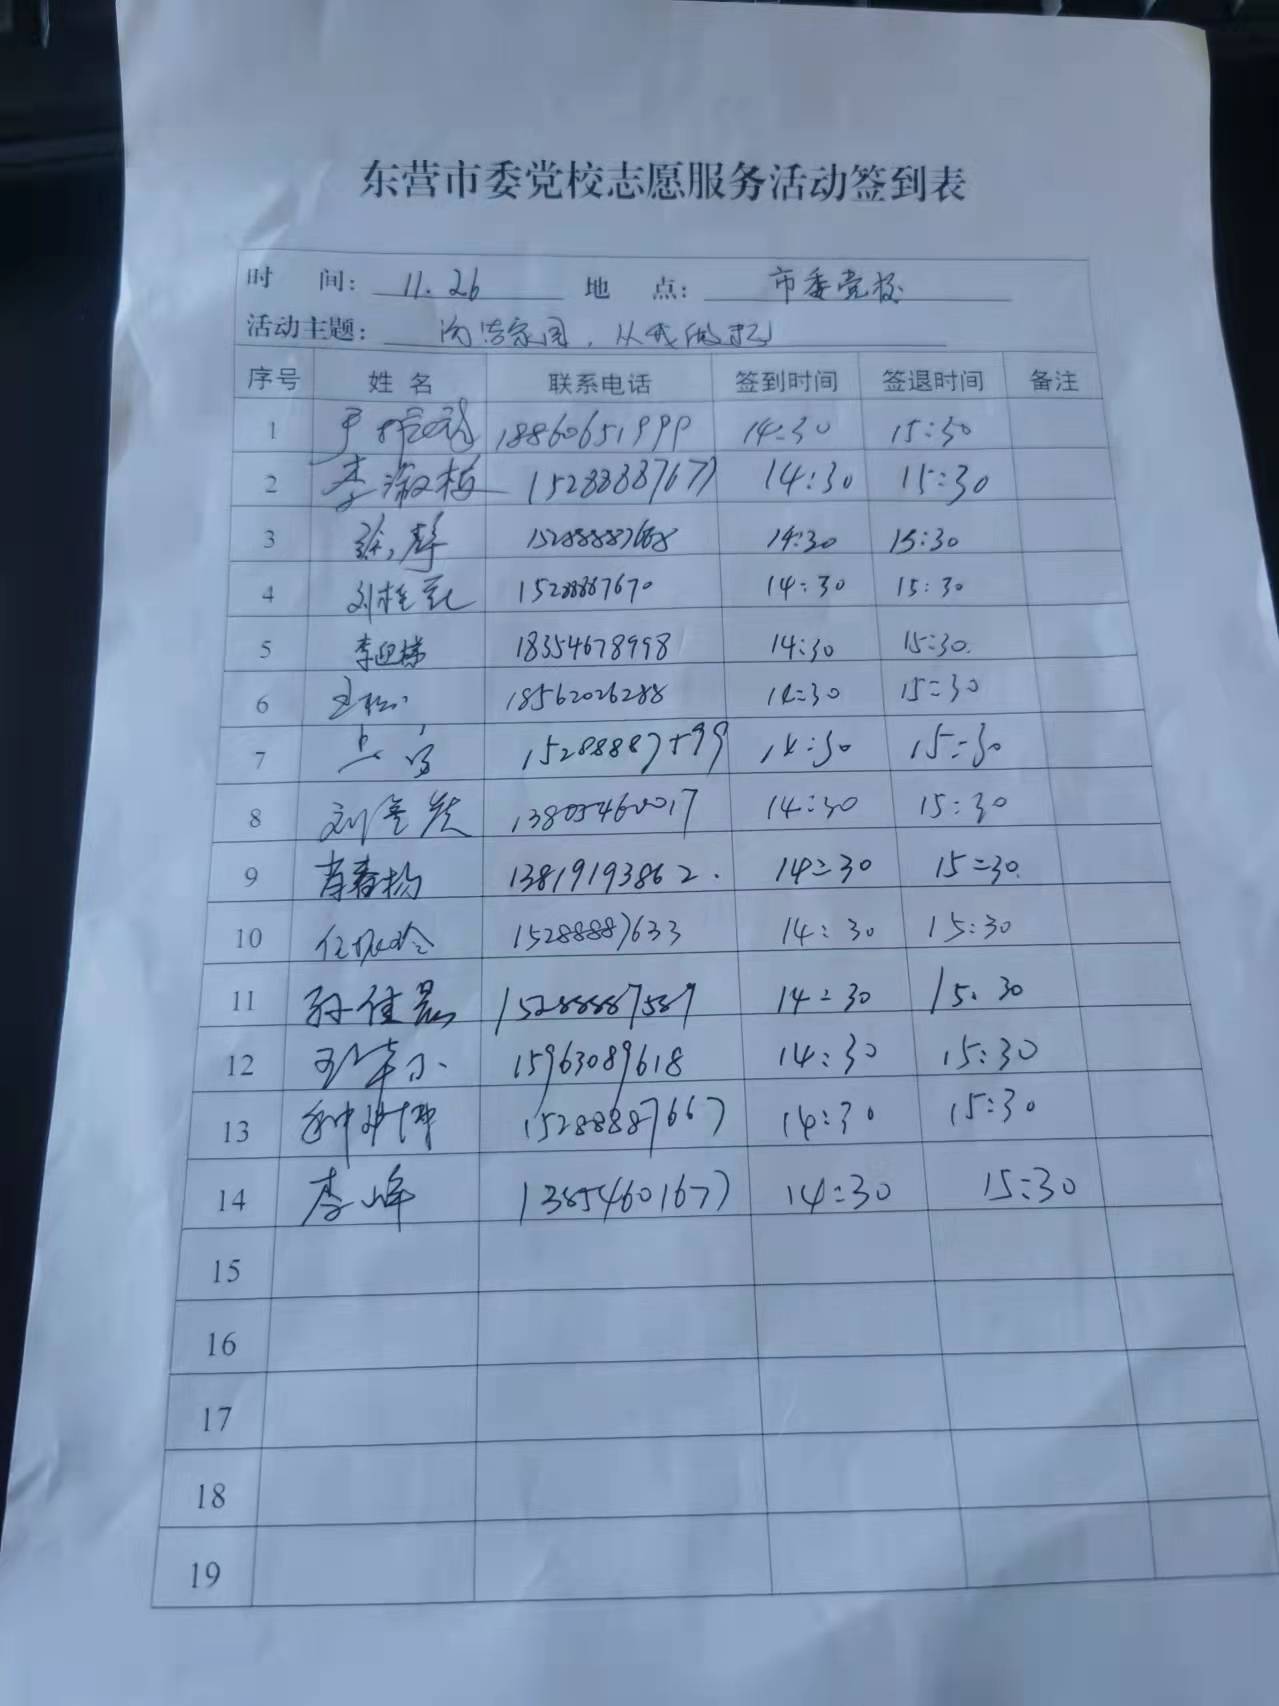 东营市委党校志愿服务活动签到表
时 间: 11.26 地 点: 市委党校
活动主题: 洁家园,从我做起
序号 姓名 联系电话 签到时间 签退时间 备注
1 18860651999 14:30 15:30
2 李淑梅 15288887677 14:30 15:30
3 徐静 15288887668 14:30 15:30
4 刘桂 1528887670 14:30 15:30
5 李迎梯 18354678998 14:30 15:30.
6 王松 18562026288 14:30 15:30
7 15288887599 14:30 15:30
8 刘金 13805460017 14:30 15:30
9 肖春杨 13819193862. 14:30 15:30.
10 任 玲 15288887633 14:30 15:30
11 孙佳磊 15288887587 14:30 15.30
12 15963089618 14:30 15:30
13 种坤 15288887667 14:30 15:30
14 李峰 13854601677 14:30 15:30
15
16
17
18
19